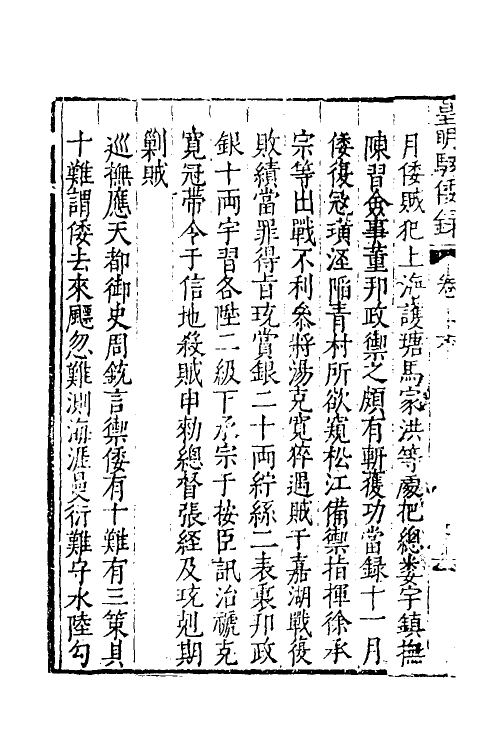 皇明馭倭録 卷
月倭賊犯上海護塘馬家洪等處把總婁宇鎮撫
陳習僉事董邦政禦之頗有斬獲功當録十一月
倭復冦璜涇陥青村所欲窺松江備禦指揮徐承
宗等出戰不利叅將湯克寛猝遇賊于嘉湖戰復
敗績當罪得㫖珫賞銀二十両紵絲二表裏邦政
銀十両宇習各陞二級下承宗于按臣訊治禠克
寛冠帶令于信地殺賊申勑總督張経及珫剋期
剿賊
廵撫應天都御史周珫言禦倭有十難有三策其
十難謂倭去來飃忽難測海涯曼衍難守水陸勾